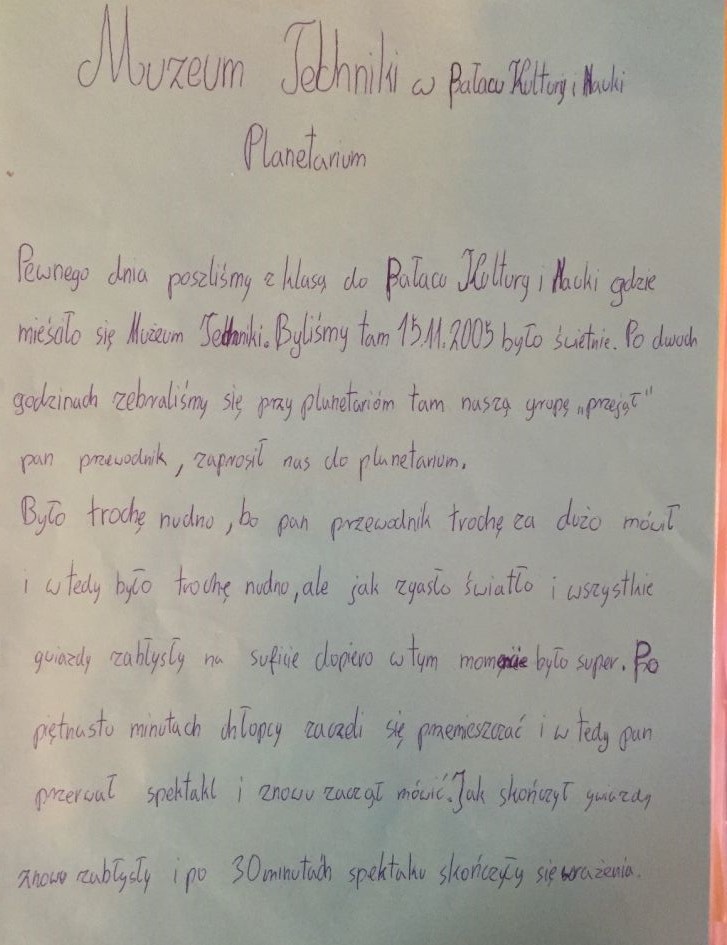 Muzeum Techniki w Pałacu Kultury i Nauki
Planetarium
Pewnego dnia poszliśmy z klasą do Pałacu Kultury i Nauki gdzie
mieśało się Muzeum Techniki. Byliśmy tam 15.11.2005 było świetnie. Po dwóch
godzinach zebraliśmy się przy planetarióm tam naszą grupę „przejął"
pan przewodnik, zaprosił nas do planetarium.
Było trochę nudno, bo pan przewodnik trochę za dużo mówił
i w tedy było trochę nudno, ale jak zgasło światło i wszystkie
gwiazdy zabłysły na suficie dopiero w tym momęcie było super. Po
piętnastu minutach chłopcy zaczeli się przemieszczać i w tedy pan
przerwał spektakl i znowu zaczął mówić. Jak skończył gwiazdy
znowu zabłysły i po 30 minutach spektaku skończyły się wrażenia.